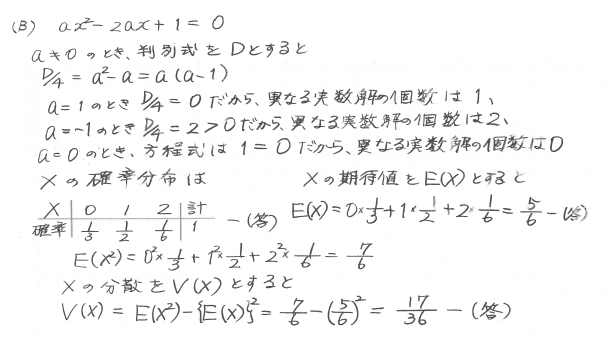 (B) ax²-2ax+1=0
a≠0のとき、判別式をDとすると
D/4=a²-a=a(a-1)
a=1のときD/4=0だから、異なる実数解の個数は1、
a=-1のときD/4=2>0だから、異なる実数解の個数は2、
a=0のとき、方程式は1=0だから、異なる実数解の個数は0
Xの確率分布は
X 0 1 2 計
確率 1/3 1/2 1/6 1 —(答)
Xの期待値をE(X)とすると
E(X)=0×1/3+1×1/2+2×1/6=5/6—(答)
E(X²)=0²×1/3+1²×1/2+2²×1/6=7/6
Xの分散をV(X)とすると
V(X)=E(X²)-{E(X)}²=7/6-(5/6)²=17/36—(答)